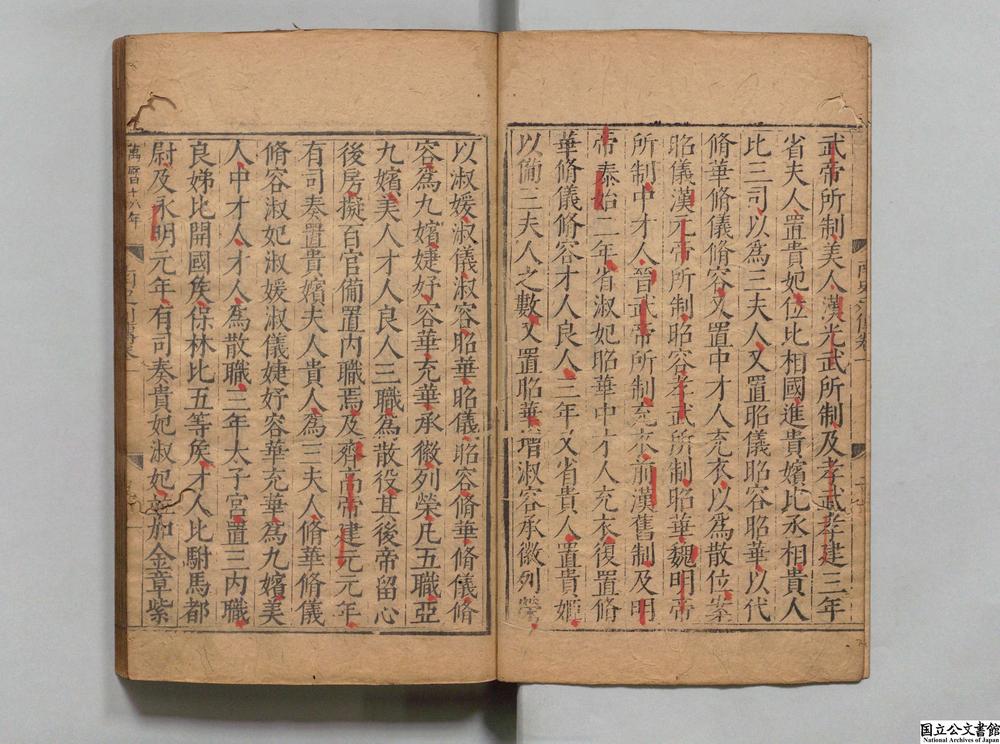 武帝所制美人漢光武所制及孝武孝建三年
省夫人置貴妃位比相國進貴嬪比丞相貴人
比三司以為三夫人又置昭儀昭容昭華以代
脩華脩儀脩容又置中才人充衣以為散位案
昭儀漢元帝所制昭容孝武所制昭華魏明帝
所制中才人晉武帝所制充衣前漢舊制及明
帝泰始二年省淑妃昭華中才人充衣復置脩
華脩儀脩容才人良人三年又省貴人置貴姬
以備三夫人之數又置昭華增淑容承徽列榮
以淑媛淑儀淑容昭華昭儀昭容脩華脩儀脩
容為九嬪婕妤容華充華承徽列榮凡五職亞
九嬪美人才人良人三職為散役其後帝留心
後房擬百官備置內職焉及齊高帝建元元年
有司奏置貴嬪夫人貴人為三夫人脩華脩儀
脩容淑妃淑媛淑儀婕妤容華充華為九嬪美
人中才人才人為散職三年太子宮置三內職
良娣比開國侯保林比五等侯才人比駙馬都
尉及永明元年有司奏貴妃淑妃並加金章紫
萬曆十八年
国立公文書館
National Archives of Japan